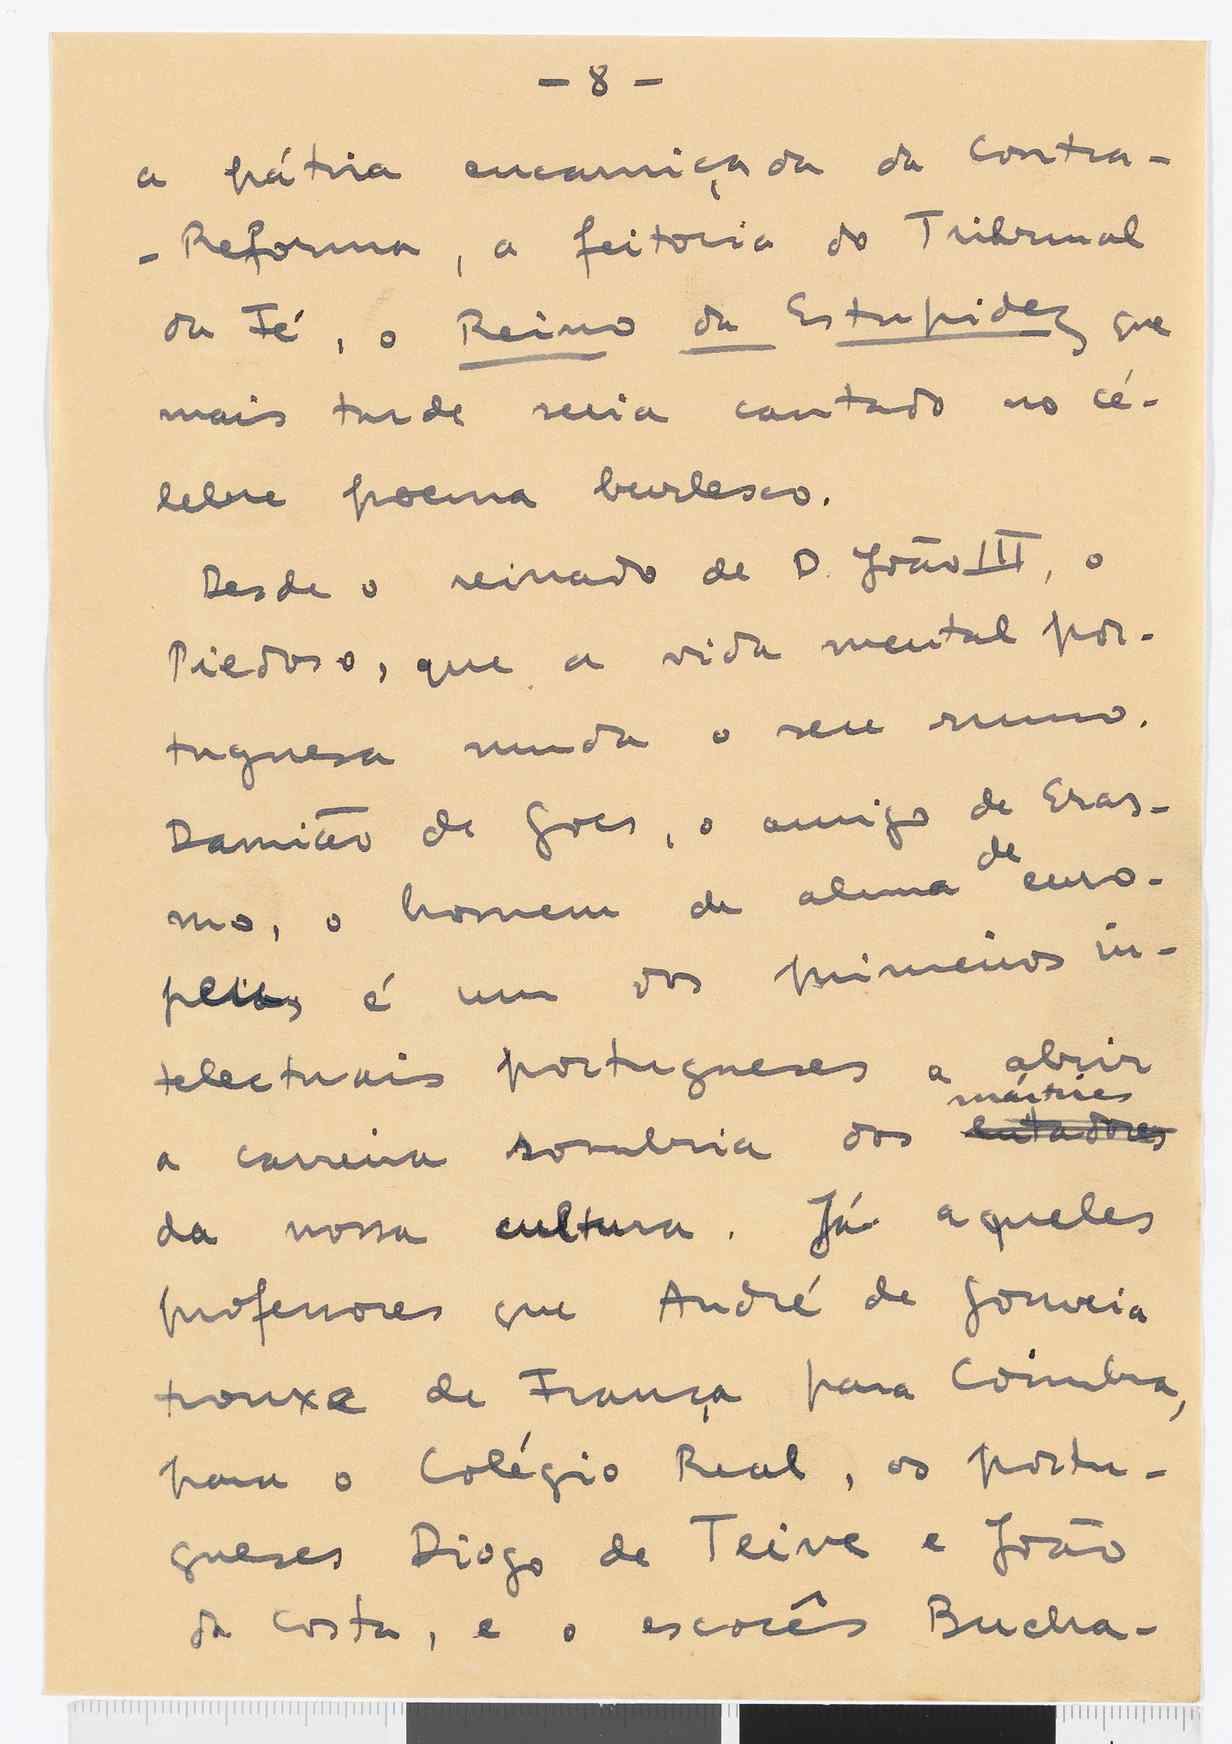 - 8 -
a pátria encarniçada da Contra-
-Reforma, a feitoria do Tribunal
da Fé, o Reino da Estupidez que
mais tarde seria cantado no cé-
lebre poema burlesco.
Desde o reinado de D. João III, o
Piedoso, que a vida mental por-
tuguesa muda o seu rumo.
Damião de Goes, o amigo de Eras-
mo, o homem de alma de euro-
peus é um dos primeiros in-
telectuais portugueses a abrir
a carreira sombria dos lutadores mártires
da nossa cultura. Já aqueles
professores que André de Gouveia
trouxe de França para Coimbra,
para o Colégio Real, os portu-
gueses Diogo de Teive e João
da Costa, e o escocês Bucha-